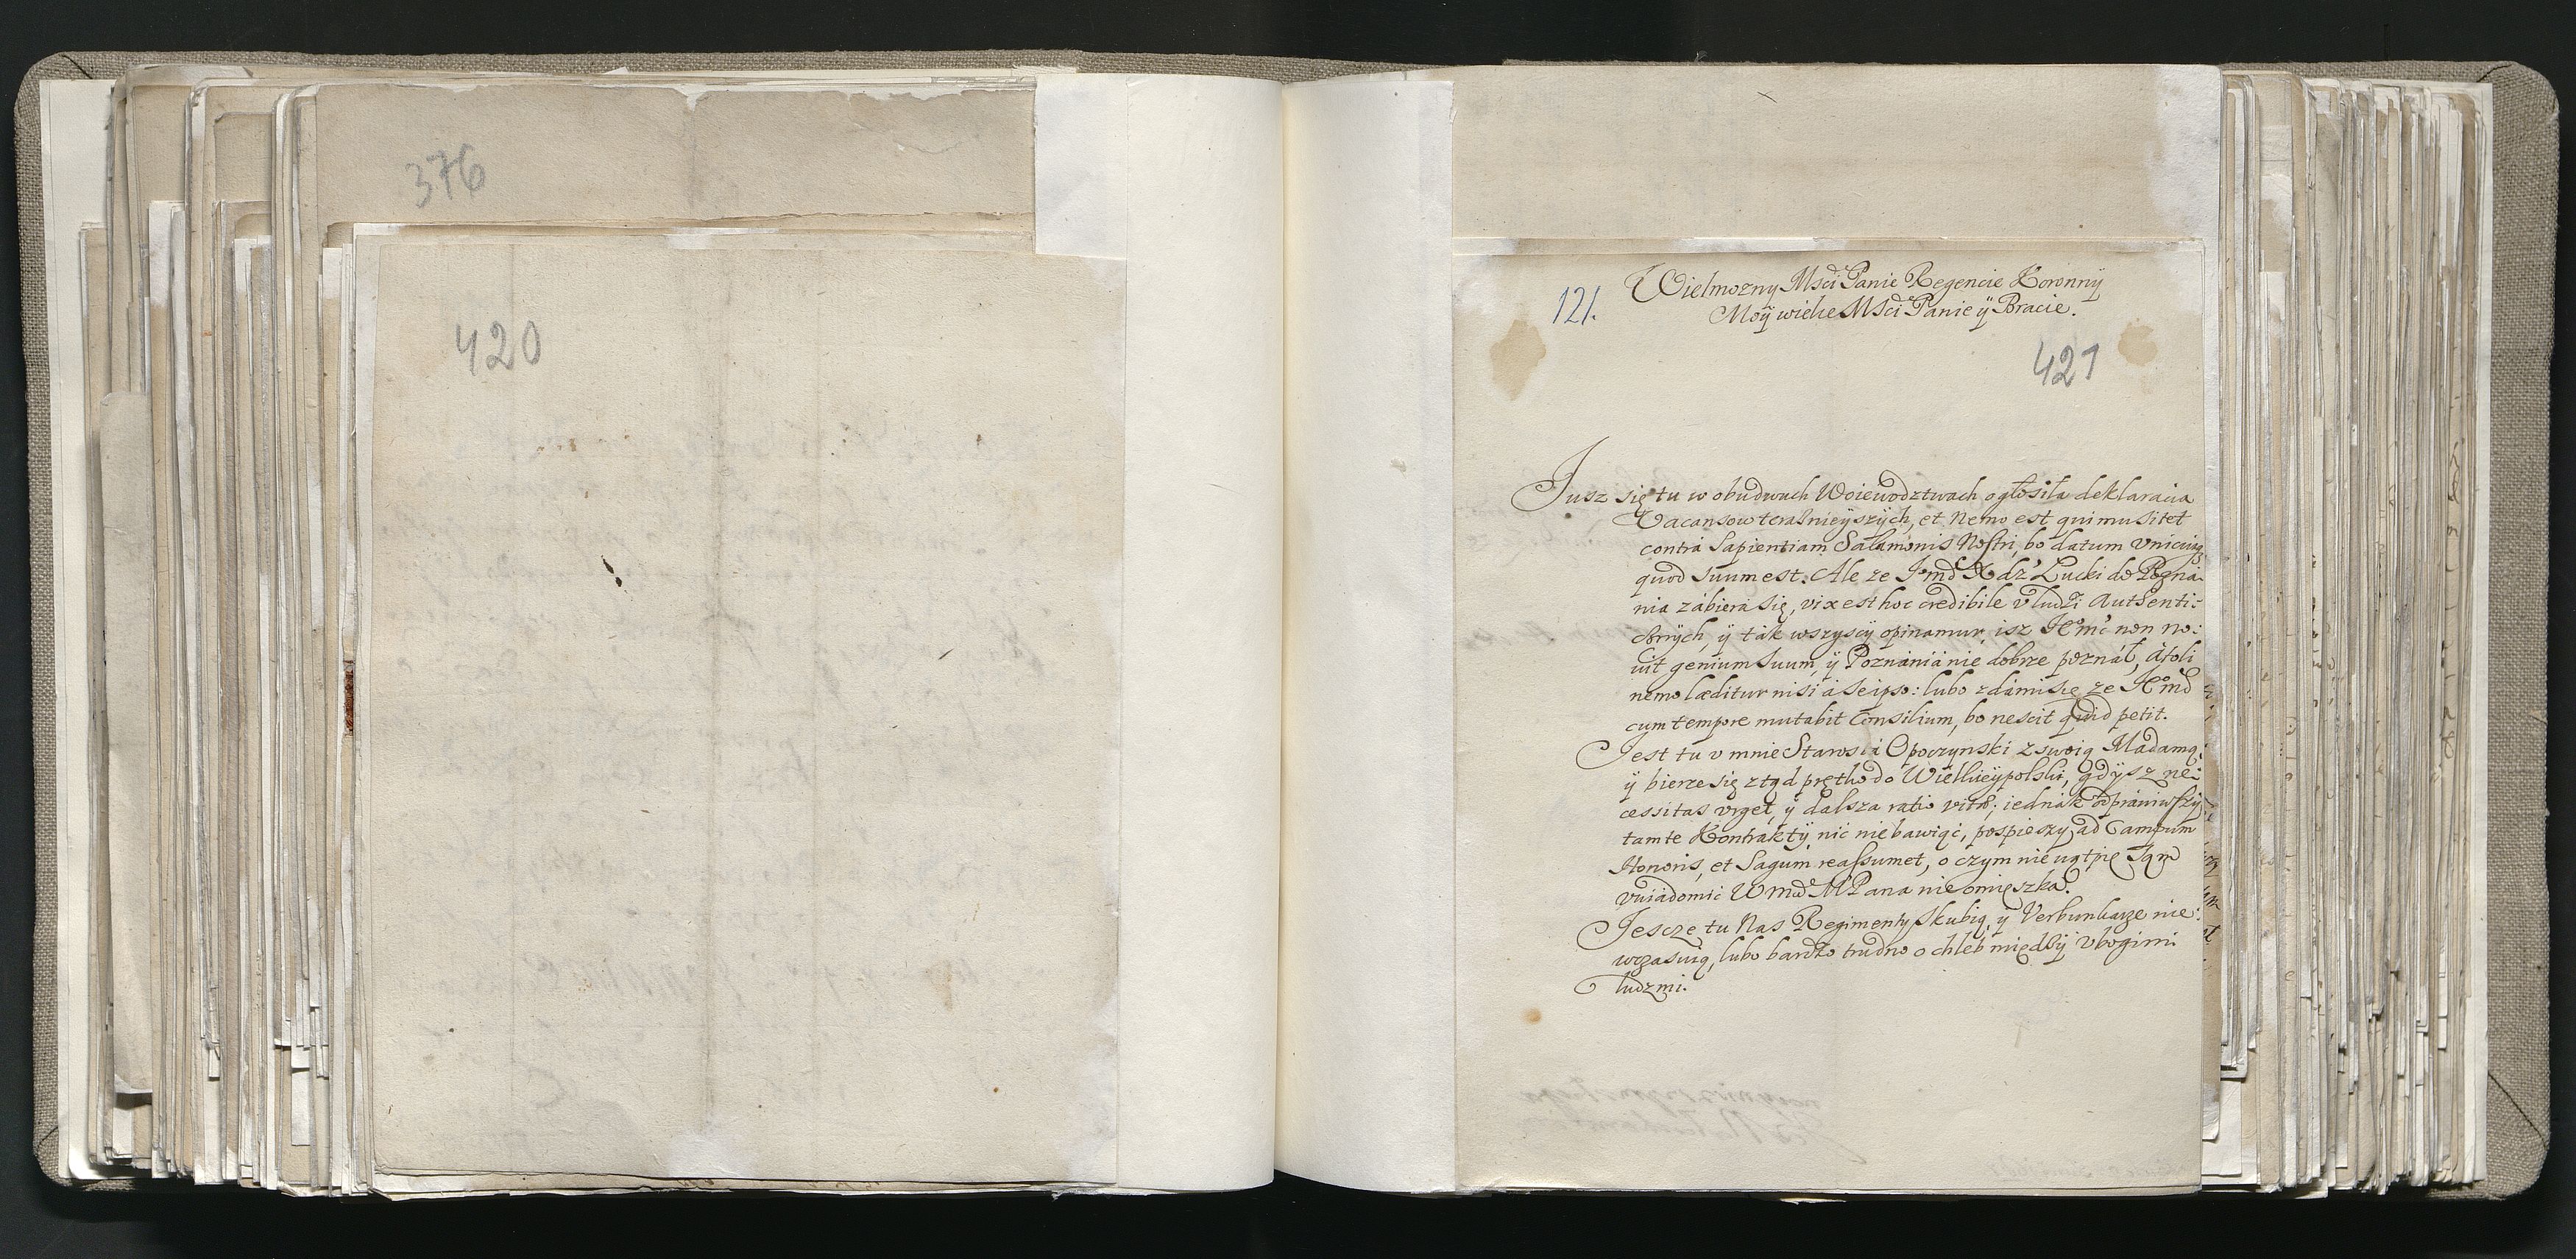 376
420
121.
Wielmozny Msci Panie Regencie Koronny
Moÿ wielce Msci Panie ÿ Bracie.
421
Jusz się tu w obudwuch Woiewodztwach ogłosiła deklaracia
Vacansow terasnieÿszÿch, et Nemo est qui musitet
contra Sapientiam Salamonis Nostri, bo datum vnicuiq
quod suum est. Ale ze Jmd Xdz Łucki do Pozna
nia zábiera się, vix est hoc credibile v ludzi Autenti:
cznÿch, ÿ ták wszyscÿ opinamur, isz Jmć non no:
uit genium suum, ÿ Poznániá nie dobrze poznáł, átoli
nemo læditur nisi á seipso: lubo zdámisię ze Jmd
cum tempore mutabit Consilium, bo nescit quid petit.
Jest tu v mnie Starosta Opoczynski z swoią Madamą,
ÿ bierze się ztąd prętko do Wielkieÿpolski, gdÿsz ne:
cessitas vrget, ÿ dalsza ratio vitæ; iednák odpráwiwszÿ
tamte Kontraktÿ, nic niebawiąc, pospieszy ad Campum
Honoris, et Sagum reassumet, o czym nieuątpię Sąm
vwiádomić WmM Pana nieomięszka.
Jescze tu Nas Regimenty skubią, ÿ Verbunkarze nie:
wczasuią, lubo bardzo trudno o chleb międzÿ vbogimi
ludzmi.